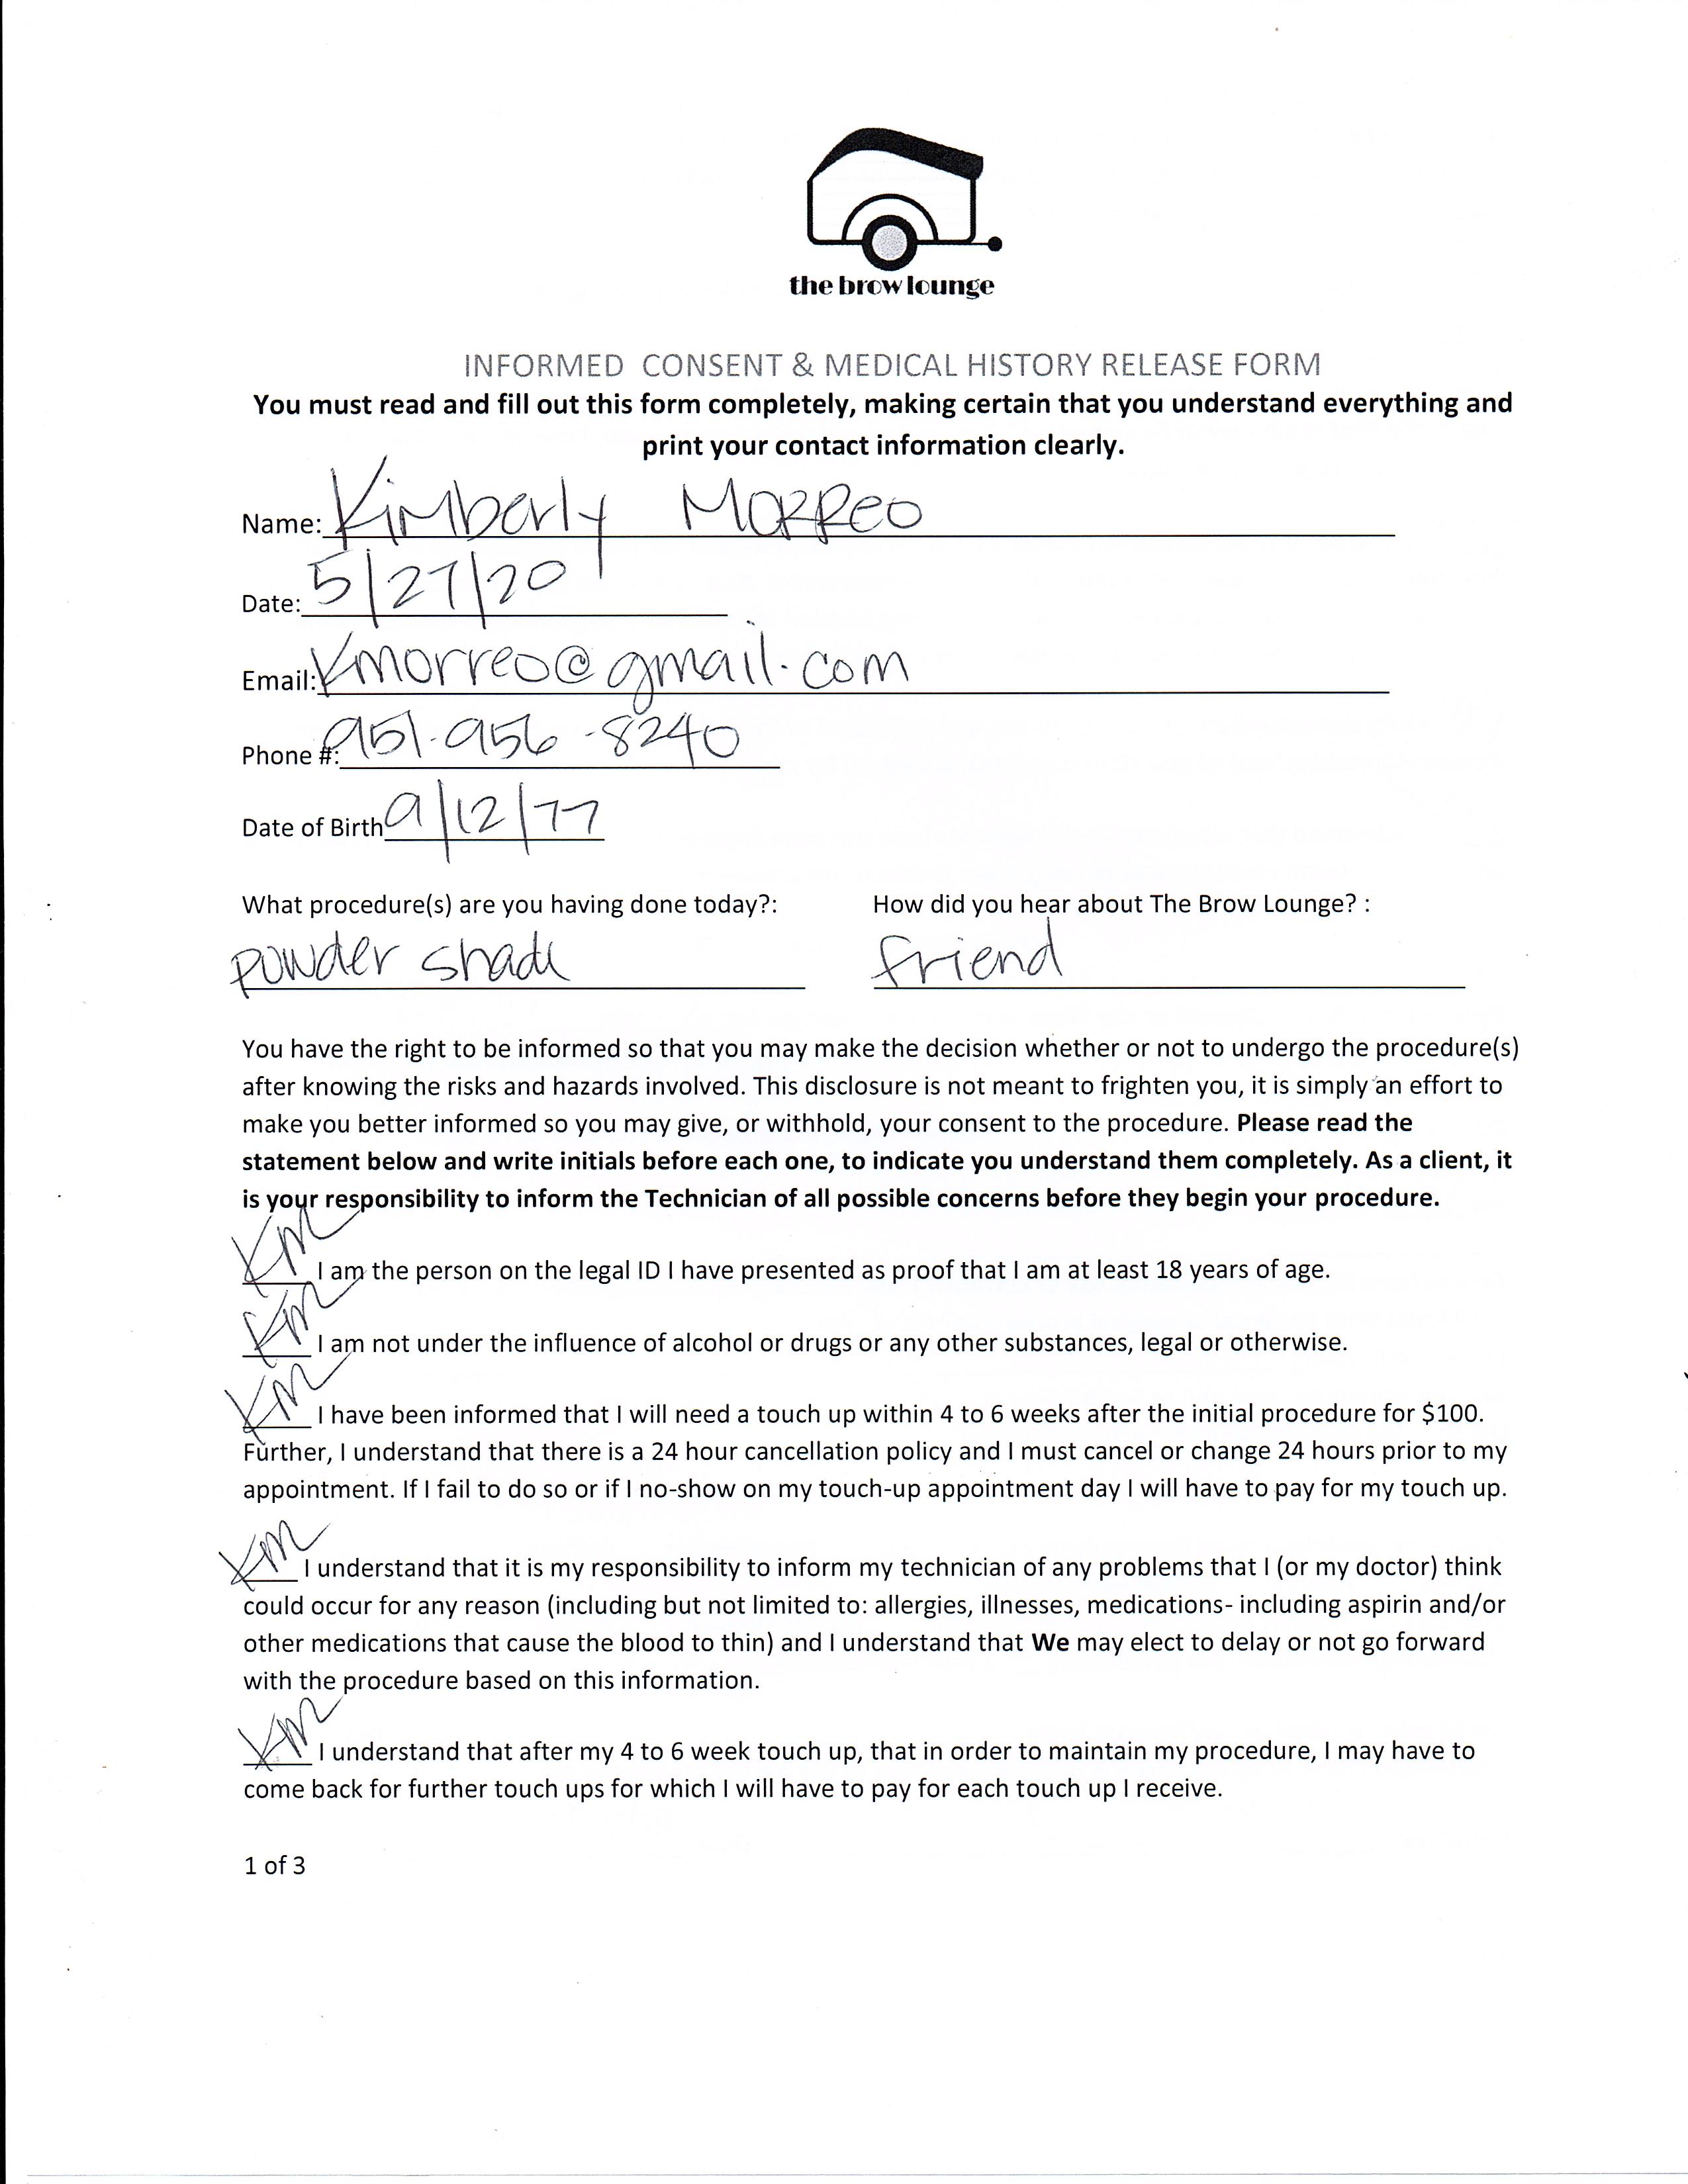 the brow lounge
INFORMED CONSENT & MEDICAL HISTORY RELEASE FORM
You must read and fill out this form completely, making certain that you understand everything and
print your contact information clearly.
Name: Kimberly Morreo
Date: 5/27/20
Email: Kmorreo@gmail.com
Phone #: 951-956-8240
Date of Birth 9/12/77
What procedure(s) are you having done today?: How did you hear about The Brow Lounge? :
powder shade friend
You have the right to be informed so that you may make the decision whether or not to undergo the procedure(s)
after knowing the risks and hazards involved. This disclosure is not meant to frighten you, it is simply an effort to
make you better informed so you may give, or withhold, your consent to the procedure. Please read the
statement below and write initials before each one, to indicate you understand them completely. As a client, it
is your responsibility to inform the Technician of all possible concerns before they begin your procedure.
KM I am the person on the legal ID I have presented as proof that I am at least 18 years of age.
KM I am not under the influence of alcohol or drugs or any other substances, legal or otherwise.
KM I have been informed that I will need a touch up within 4 to 6 weeks after the initial procedure for $100.
Further, I understand that there is a 24 hour cancellation policy and I must cancel or change 24 hours prior to my
appointment. If I fail to do so or if I no-show on my touch-up appointment day I will have to pay for my touch up.
KM I understand that it is my responsibility to inform my technician of any problems that I (or my doctor) think
could occur for any reason (including but not limited to: allergies, illnesses, medications- including aspirin and/or
other medications that cause the blood to thin) and I understand that We may elect to delay or not go forward
with the procedure based on this information.
KM I understand that after my 4 to 6 week touch up, that in order to maintain my procedure, I may have to
come back for further touch ups for which I will have to pay for each touch up I receive.
1 of 3